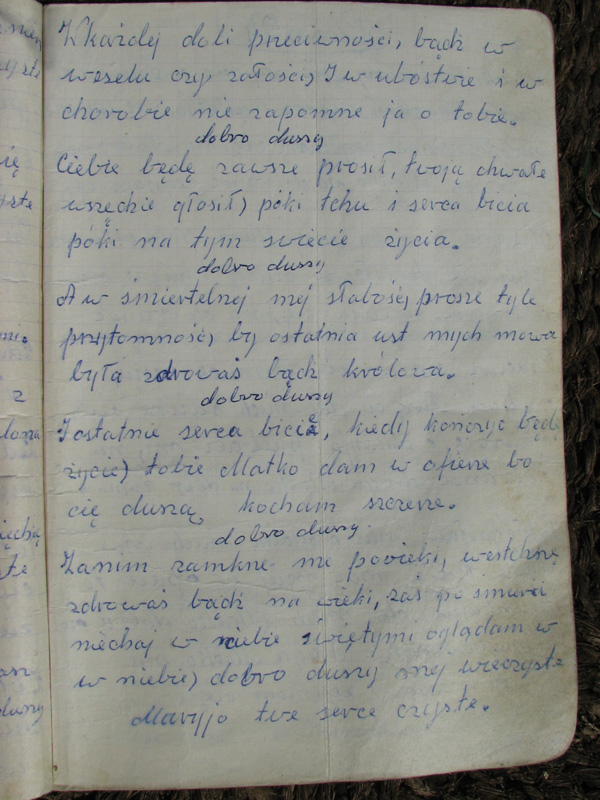 W każdej doli przeciwności, bądź w
weselu czy załości, I w ubóstwie i w
chorobie nie zapomne ja o tobie.
dobro duszy
Ciebie będę zawsze prosił, twoją chwałe
wszędzie głosił, póki tchu i serca bicia
póki na tym swiecie życia.
dobro duszy
A w śmiertelnej mej słabości, prosze tyle
przytomności, by ostatnia ust mych mowa
była zdrowaś bądź królowa.
dobro duszy
I ostatnie serca bicie, kiedy kończyć będę
życie, tobie Matko dam w ofieże bo
cię duszą kocham szczeże.
dobro duszy
Zanim zamkne me powieki, westchnę
zdrowaś bądź na wieki, zaś po śmierci
niechaj w niebie świętymi oglądam w
w niebie, dobro duszy mej wieczyste
Maryjo twe serce czyste.